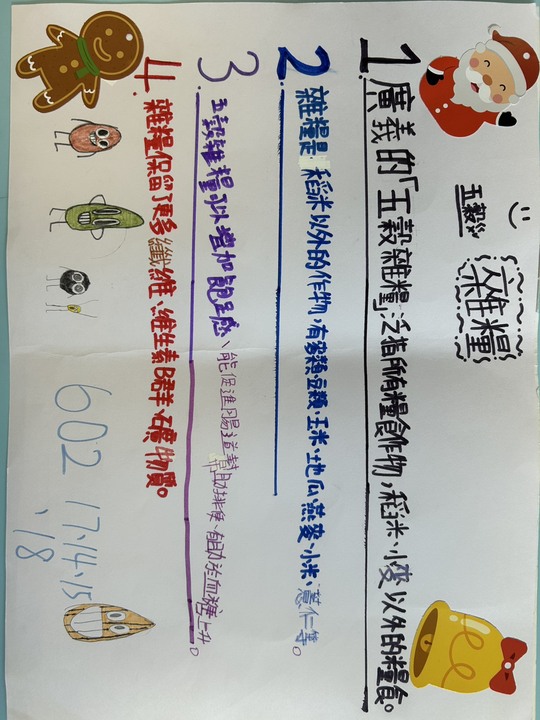 五穀
雜糧
1.廣義的「五穀雜糧」泛指所有糧食作物，稻米、小麥以外的糧食。
2.雜糧是稻米以外的作物，有麥類、豆類、玉米、地瓜、燕麥、小米、薏仁等。
3.五穀雜糧可以增加飽足感、能促進腸道幫助排便、有助於血糖上升。
4.雜糧保留了更多纖維、維生素B群、礦物質。
602 17.14.15
、18